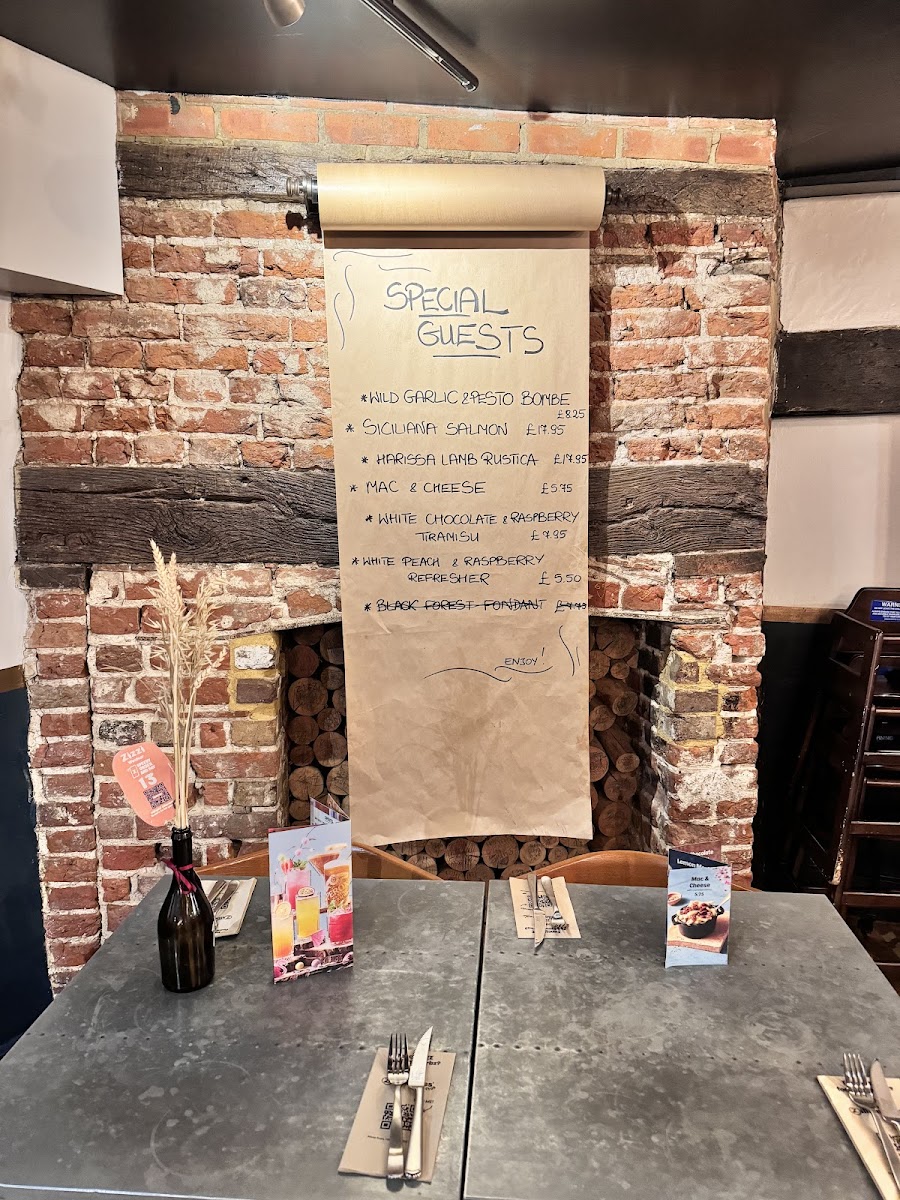 SPECIAL
GUESTS
* WILD GARLIC & PESTO BOMBE
£8.25
* SICILIANA SALMON £17.95
* HARISSA LAMB RUSTICA £17.95
* MAC & CHEESE £5.75
* WHITE CHOCOLATE & RASPBERRY
TIRAMISU £7.95
* WHITE PEACH & RASPBERRY
REFRESHER £5.50
* BLACK FOREST FONDANT
ENJOY!
Zizzi
13
Mac &
Cheese
5.75